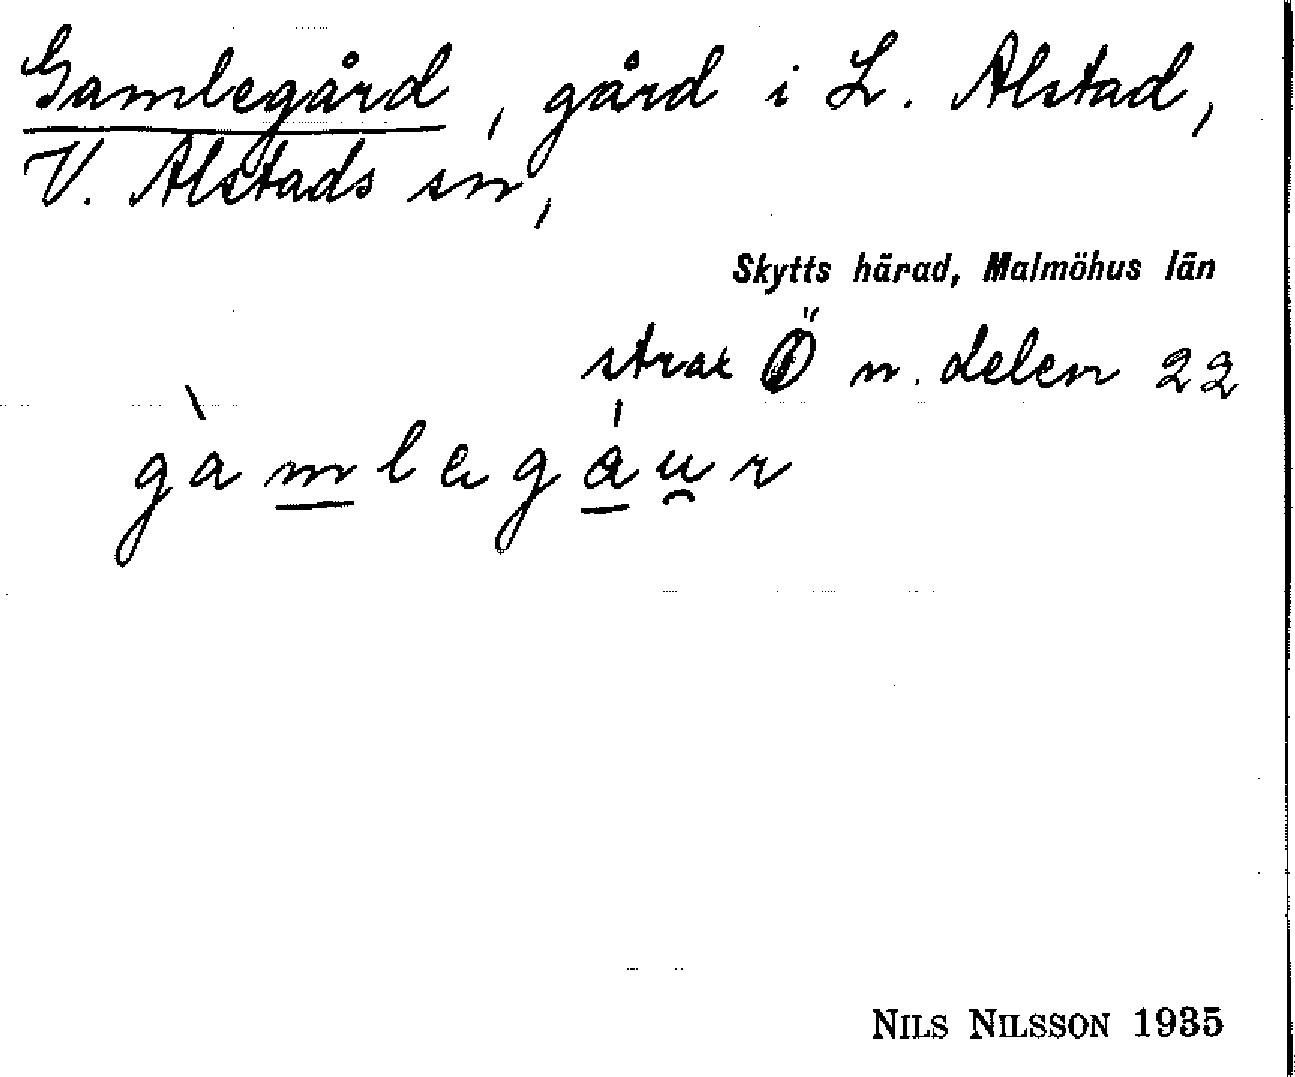 Gamlegård, gård i L. Alstad,
V. Alstads sn,
Skytts härad, Malmöhus län
strax Ö n. delen 22
gàmlegáu̯r
NILS NILSSON 1935